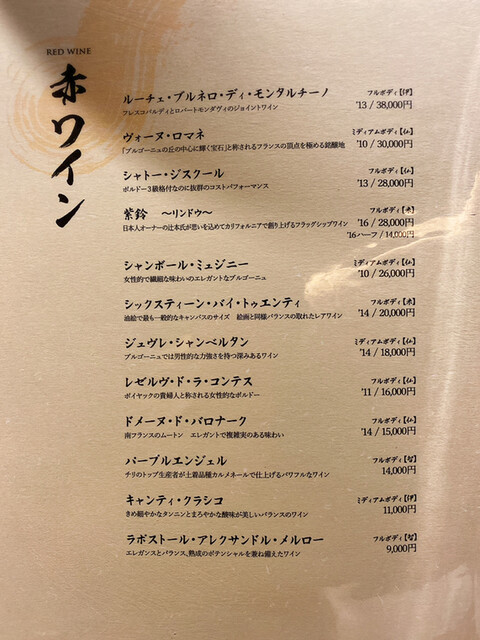 RED WINE
赤ワイン
ルーチェ・ブルネロ・ディ・モンタルチーノ フルボディ【伊】
フレスコバルディとロバートモンダヴィのジョイントワイン '13 / 38,000円
ヴォーヌ・ロマネ ミディアムボディ【仏】
「ブルゴーニュの丘の中心に輝く宝石」と称されるフランスの頂点を極める銘醸地 '10 / 30,000円
シャトー・ジスクール フルボディ【仏】
ボルドー3級格付なのに抜群のコストパフォーマンス '13 / 28,000円
紫鈴 〜リンドウ〜 フルボディ【米】
日本人オーナーの辻本氏が思いを込めてカリフォルニアで創り上げるフラッグシップワイン '16 / 28,000円
'16 ハーフ / 14,000円
シャンボール・ミュジニー ミディアムボディ【仏】
女性的で繊細な味わいのエレガントなブルゴーニュ '10 / 26,000円
シックスティーン・バイ・トゥエンティ フルボディ【米】
油絵で最も一般的なキャンバスのサイズ 絵画と同様バランスの取れたレアワイン '14 / 20,000円
ジェヴレ・シャンベルタン ミディアムボディ【仏】
ブルゴーニュでは男性的な力強さを持つ深みあるワイン '14 / 18,000円
レゼルヴ・ド・ラ・コンテス フルボディ【仏】
ポイヤックの貴婦人と称される女性的なボルドー '11 / 16,000円
ドメーヌ・ド・バロナーク フルボディ【仏】
南フランスのムートン エレガントで複雑実のある味わい '14 / 15,000円
パープルエンジェル フルボディ【智】
チリのトップ生産者が土着品種カルメネールで仕上げるパワフルなワイン 14,000円
キャンティ・クラシコ ミディアムボディ【伊】
きめ細やかなタンニンとまろやかな酸味が美しいバランスのワイン 11,000円
ラポストール・アレクサンドル・メルロー フルボディ【智】
エレガンスとバランス、熟成のポテンシャルを兼ね備えたワイン 9,000円